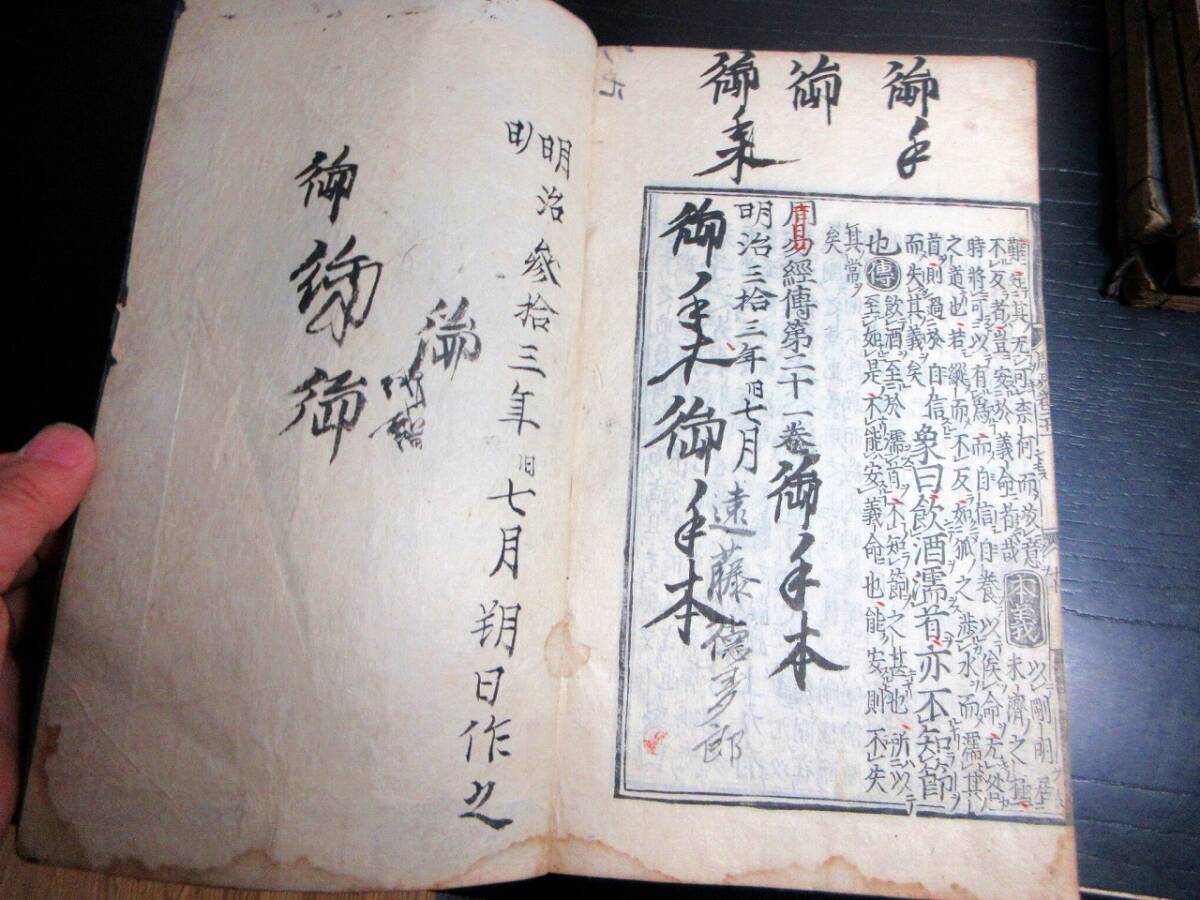 御手
御
御
難知其无可奈何而放意
不反者豈安於義命者哉
本義
以剛明居
未濟之極
時將可以有為而自信自養以俟命无咎
之道也若縱而不反如狐之涉水而濡其
首則過於自信
而失其義矣
象曰飲酒濡首亦不知節
也
傳
飲酒至於濡首不知節之甚也所以
至如是不能安義命也能安則不失
其常
矣
周易經傳第二十一卷
御手本
明治三拾三年旧七月
遠藤徳多郎
御手本
御手本
明治参拾三年旧七月朔日作之
御
御
御
御